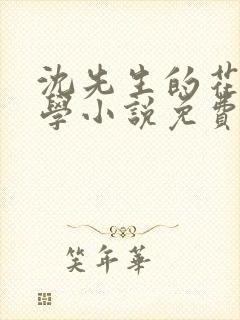 沈先生的花
學小說免費
笑年華